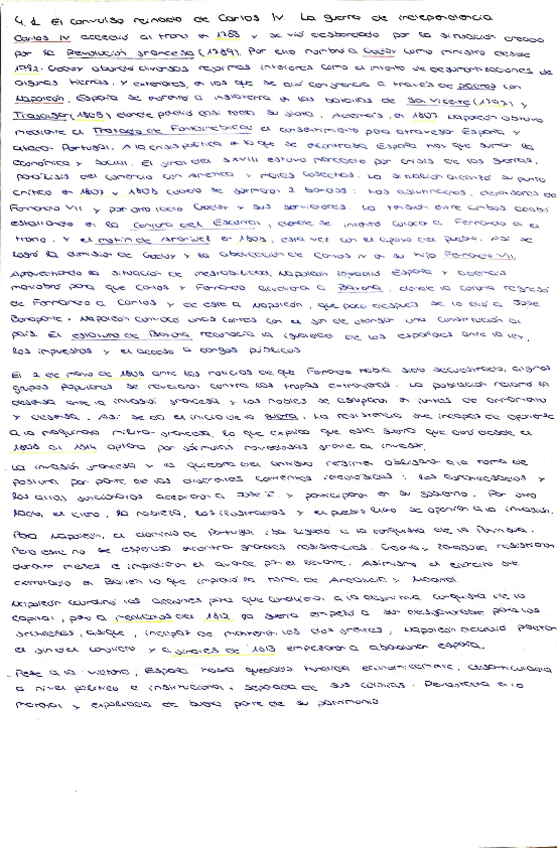 4.1 El convulso reinado de Carlos IV. La guerra de independencia
Carlos IV accedió al trono en 1788 y se vio desbordado por la situación creada
por la Revolución francesa (1789). Por ello nombró a Godoy como ministro desde
1792. Godoy abordó diversas reformas interiores como el intento de desamortizaciones de
algunas tierras. Y exteriores, en las que se dio convergencia a través de pactos con
Napoleón. España se enfrentó a Inglaterra en las batallas de San Vicente (1797) y
Trafalgar (1805) donde perdió casi toda su flota. Además, en 1807 Napoleón obtuvo
mediante el Tratado de Fontainebleau el consentimiento para atravesar España y
atacar Portugal. A la crisis política en la que se encontraba España hay que sumar la
económica y social. El final del s.XVIII estuvo marcado por crisis de las guerras,
parálisis del comercio con América y malas cosechas. La situación alcanzó su punto
crítico en 1807 y 1808 cuando se forman 2 bandos: los defensores de
Fernando VII y por otro lado Godoy y sus servidores. La tensión entre ambos acabó
estallando en la conjura del Escorial, donde se intentó colocar a Fernando en el
trono. Y el motín de Aranjuez en 1808, esta vez con el apoyo del pueblo. Así se
logró la dimisión de Godoy y la abdicación de Carlos IV en su hijo Fernando VII.
Aprovechando la situación de inestabilidad, Napoleón invadió España y
maniobró para que Carlos y Fernando acudieran a Bayona, donde la corona regresó
de Fernando a Carlos y de este a Napoleón, que poco después se lo dio a José
Bonaparte. Napoleón convocó unas cortes con el fin de otorgar una constitución al
país. El estatuto de Bayona reconocía la igualdad de los españoles ante la ley,
los impuestos y el acceso a cargos públicos
El 2 de mayo de 1808 ante las noticias de que Fernando había sido secuestrado, algunos
grupos populares se revelaron contra las tropas extranjeras. La población reclamó la
defensa ante la invasión francesa y los nobles se agruparon en juntas de armamento
y defensa. Así se dio el inicio de la guerra. La resistencia fue incapaz de oponerse
a la maquinaria militar francesa, lo que explica que esta guerra que duró desde el
1808 al 1814 optara por fórmulas novedosas frente al invasor.
La invasión francesa y la quiebra del antiguo régimen obligaron a la toma de
postura por parte de las diferentes corrientes ideológicas: los afrancesados y
los altos funcionarios aceptaron a José I y participaron en su gobierno. Por otro
lado, el clero, la nobleza, los ilustrados y el pueblo llano se oponían a la invasión.
Para Napoleón, el dominio de Portugal iba ligado a la conquista de la Península.
Pero este no se esperaba encontrar grandes resistencias. Gerona y Zaragoza resistieron
durante meses e impidieron el avance por el levante. Asimismo el ejército fue
derrotado en Bailén lo que impidió la toma de Andalucía y Madrid.
Napoleón coordinó las acciones para que condujeran a la definitiva conquista de la
capital, pero a mediados del 1812 la guerra empezó a ser desfavorable para los
franceses, así que, incapaz de mantener los dos frentes, Napoleón decidió pactar
el fin del conflicto y a finales de 1813 empezaron a abandonar España.
Pese a la victoria, España había quedado hundida económicamente, desarticulada
a nivel político e institucional, separada de sus colonias. Devastada en lo
material y expoliada de buena parte de su patrimonio